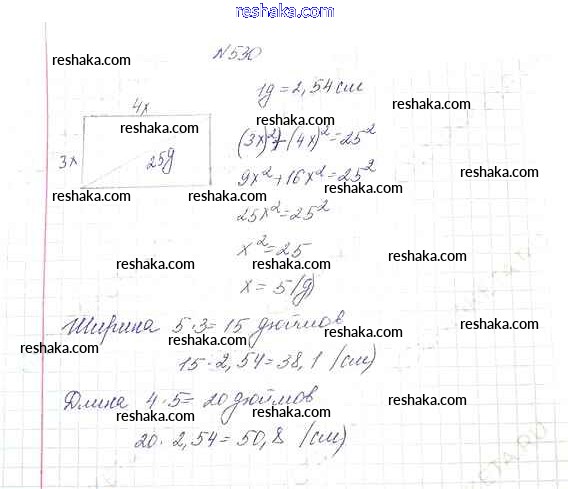 www.reshaka.com
№530
reshaka.com
reshaka.com
1д = 2,54 см
reshaka.com
4x
reshaka.com
(3x)²+(4x)²=25²
reshaka.com
3x
25д
9x²+16x²=25²
reshaka.com
reshaka.com
reshaka.com
25x²=25²
reshaka.com
x²=25
reshaka.com
reshaka.com
reshaka.com
x = 5 (д)
Ширина 5·3=15 дюймов
reshaka.com
reshaka.com
reshaka.com
15·2,54=38,1 (см)
Длина 4·5=20 дюймов
reshaka.com
reshaka.com
reshaka.com
20·2,54=50,8 (см)